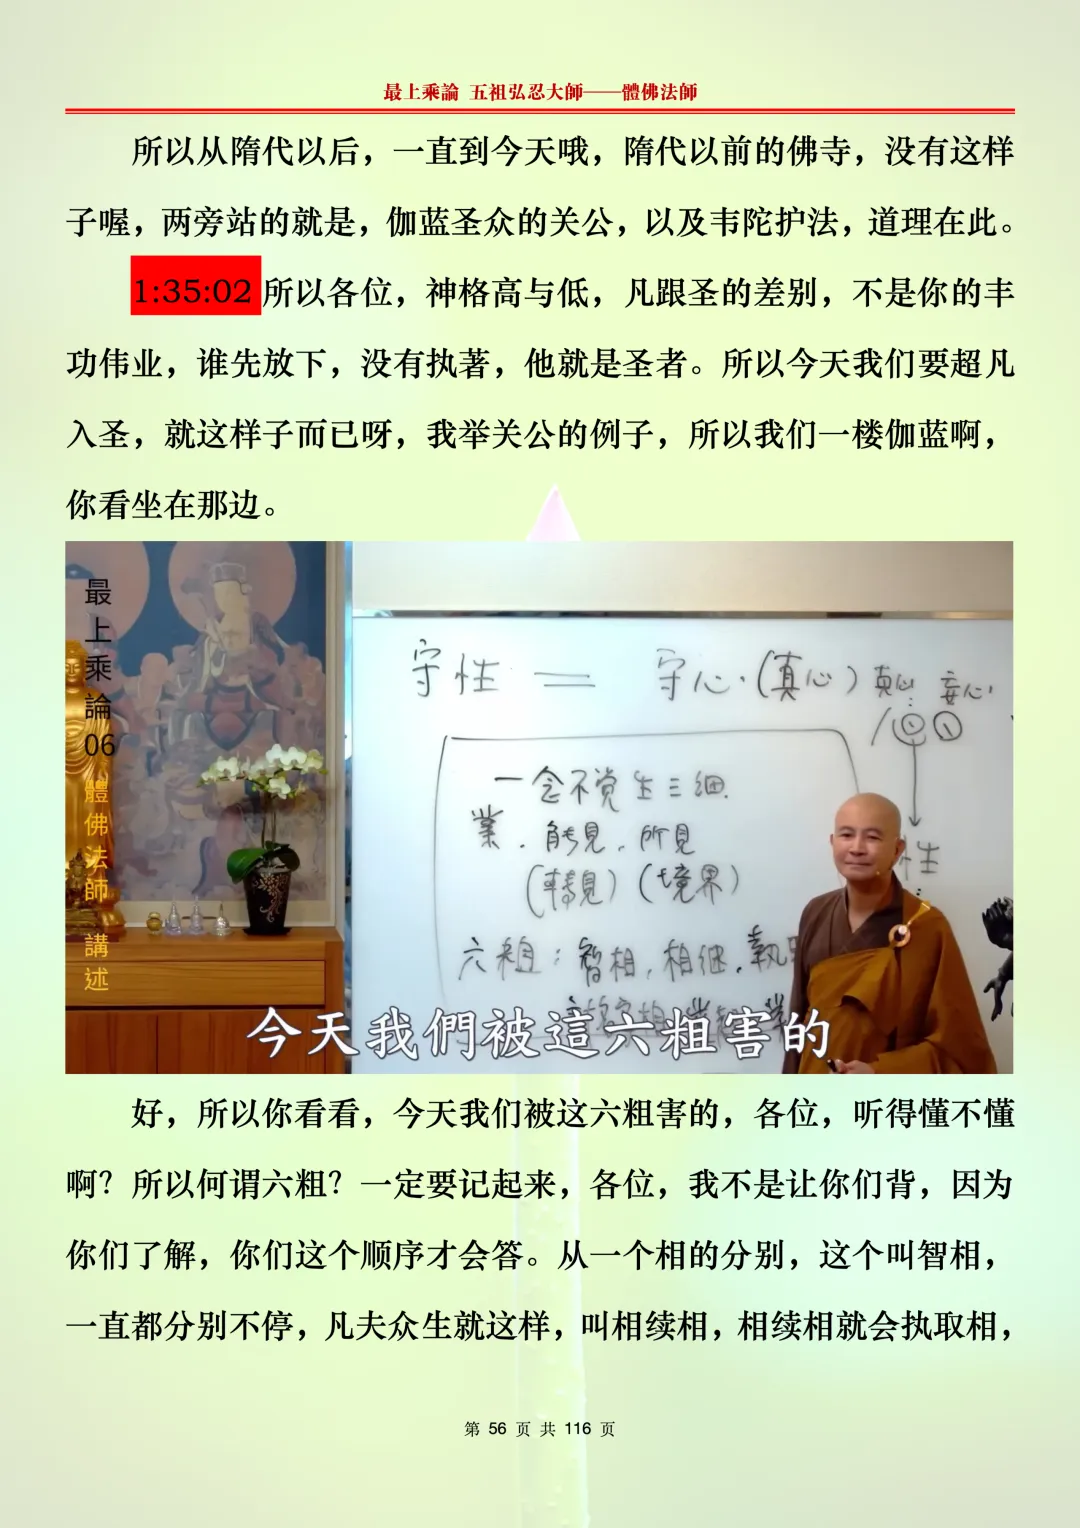 最上乘論 五祖弘忍大師——體佛法師
所以从隋代以后，一直到今天哦，隋代以前的佛寺，没有这样
子喔，两旁站的就是，伽蓝圣众的关公，以及韦陀护法，道理在此。
1:35:02 所以各位，神格高与低，凡跟圣的差别，不是你的丰
功伟业，谁先放下，没有执著，他就是圣者。所以今天我们要超凡
入圣，就这样子而已呀，我举关公的例子，所以我们一楼伽蓝啊，
你看坐在那边。
最上乘論06 體佛法師 講述
守性 = 守心·(真心) 真心 妄心
一念不觉生三细
業．能見．所見
(轉見) (境界)
性
六粗：智相，相继，執
今天我們被這六粗害的
好，所以你看看，今天我们被这六粗害的，各位，听得懂不懂
啊？所以何谓六粗？一定要记起来，各位，我不是让你们背，因为
你们了解，你们这个顺序才会答。从一个相的分别，这个叫智相，
一直都分别不停，凡夫众生就这样，叫相续相，相续相就会执取相，
第 56 页 共 116 页